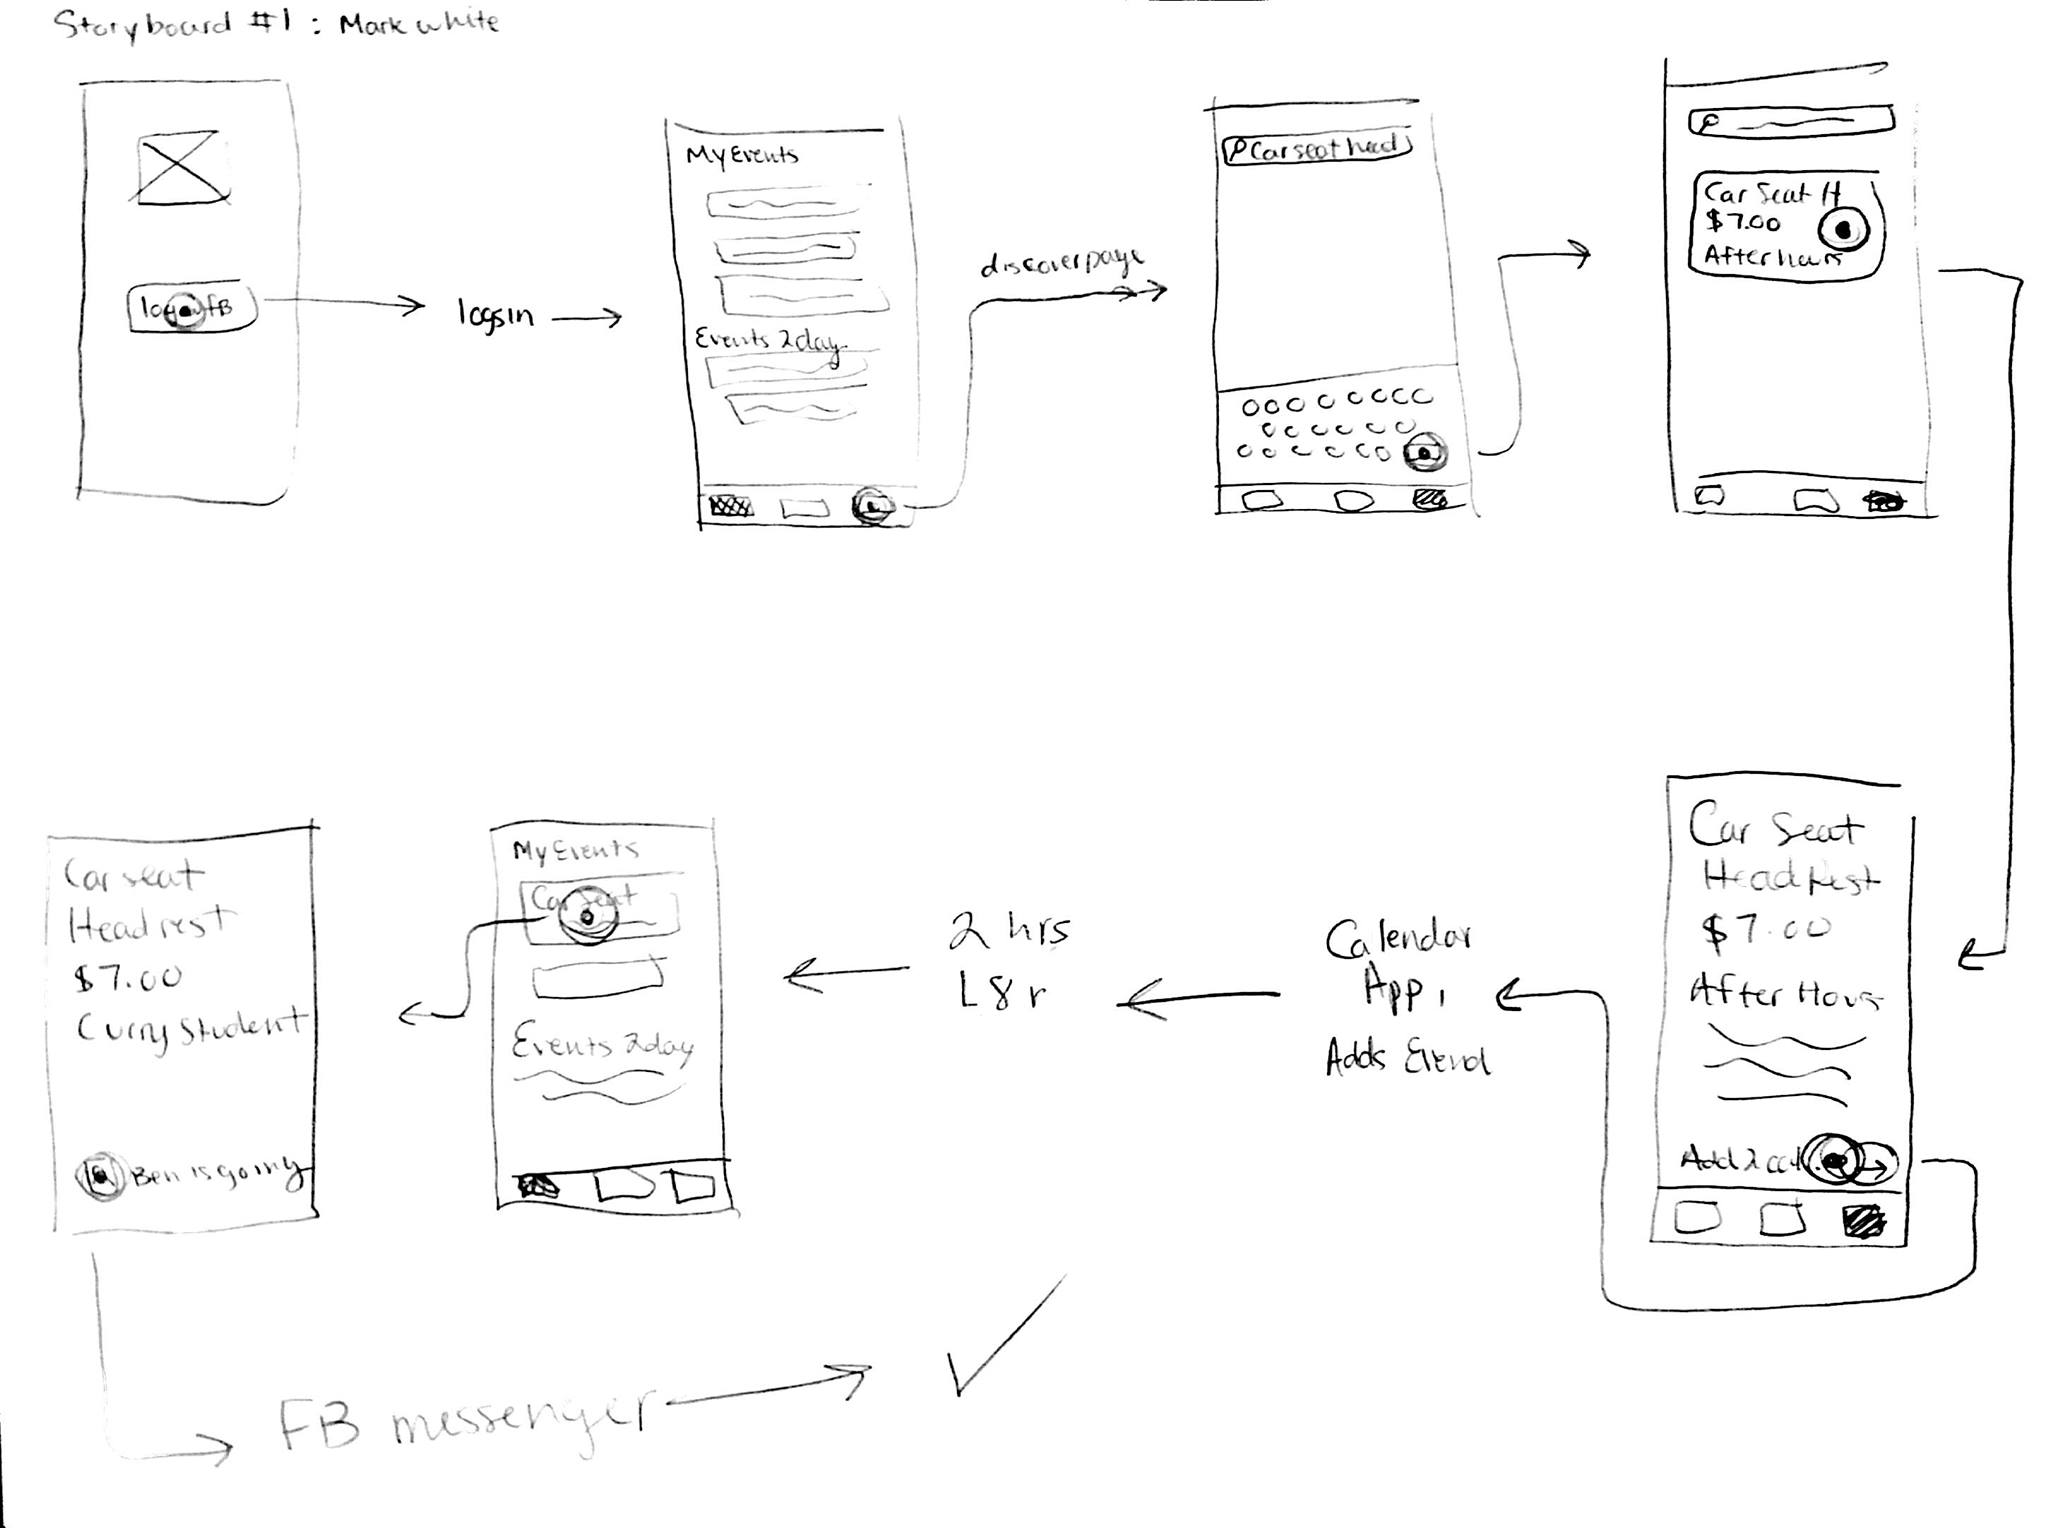 Storyboard #1 : Mark white
login FB
logsin
My Events
Events 2day
discoverpage
Car seat head
Car Seat H
$7.00
After hours
Car Seat
Head Rest
$7.00
After Hours
Add 2 cal
Calendar
App,
Adds Event
2 hrs
L8r
My Events
Car Seat
Events 2day
Car seat
Head rest
$7.00
Curry Student
Ben is going
FB messenger